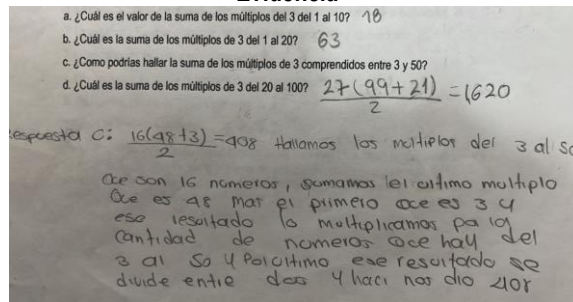 Evidencia
a. ¿Cuál es el valor de la suma de los múltiplos del 3 del 1 al 10? 18
b. ¿Cuál es la suma de los múltiplos de 3 del 1 al 20? 63
c. ¿Como podrías hallar la suma de los múltiplos de 3 comprendidos entre 3 y 50?
d. ¿Cuál es la suma de los múltiplos de 3 del 20 al 100? 27(99+21)/2 = 1620
espuesta C: 16(48+3)/2 = 408 Hallamos los moltiplos del 3 al 50
Oce son 16 nomeros, sumamos el oltimo moltiplo
Oce es 48 mas el primero oce es 3 y
ese resoltado lo moltiplicamos po la
cantidad de nomeros oce hay del
3 al 50 y Pol oltimo ese resoltado se
divide entre dos y haci nos dio 408